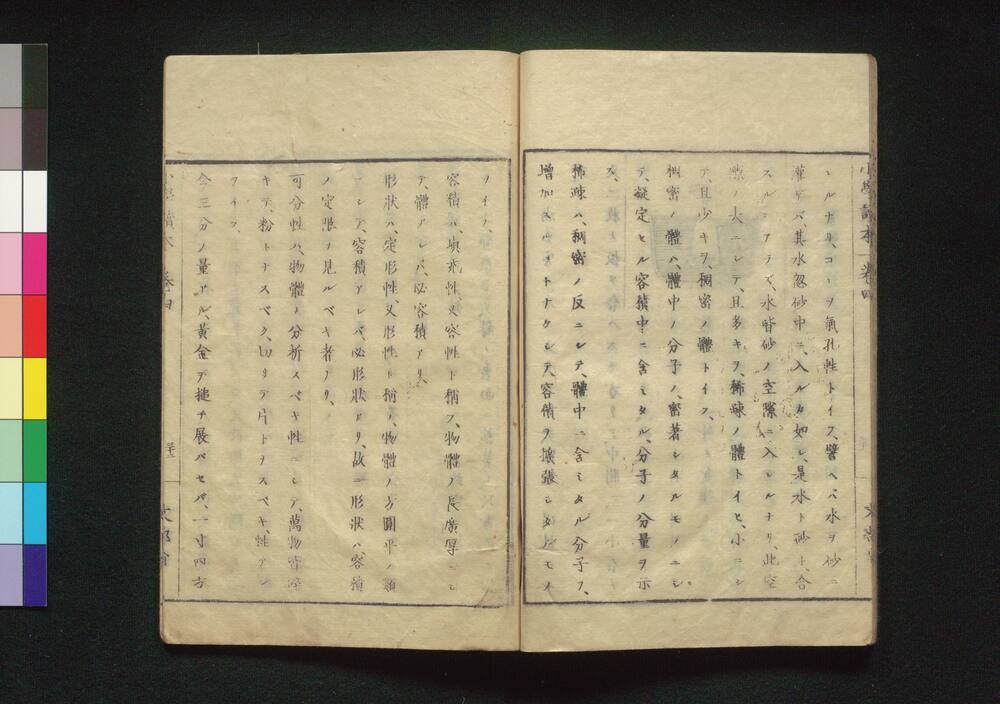 小學讀本 卷四
ルナリ、コレヲ氣孔性トイフ、譬ヘバ水ヲ砂ニ
灌ゲバ、其水忽砂中ニ、入ルカ如シ、是水ト砂ト、合
スルニアラズ、水皆砂ノ空隙ニ入レルナリ、此空
隙ノ大ニシテ、且多キヲ、稀疎ノ體トイヒ、小ニシ
テ、且少キヲ、稠密ノ體トイフ、
稠密ノ體ハ、體中ノ分子ノ、密著シタルモノニシ
テ、凝定セル容積中ニ含ミタル、分子ノ分量ヲ示
ス、
稀疎ハ、稠密ノ反ニシテ、體中ニ含ミタル分子ヲ、
増加スルコトナクシテ、容積ヲ擴張シタルモノ
ヲイフ、
容積ハ、填充性、又容性ト稱ス、物體ノ長廣厚ニシ
テ、體アレバ、必容積アリ、
形狀ハ、定形性、又形性ト稱ス、物體ノ方圓平ノ類
ニシテ、容積アレバ、必形狀アリ、故ニ形狀ハ、容積
ノ定限ノ見ルベキ者ナリ、
可分性ハ、物體ノ分析スベキ性ニシテ、萬物皆
キテ、粉トナスベク、切リテ片トナスベキ、性アル
ヲイフ、
今三分ノ量アル、黃金ヲ搥チ展バセバ、一寸四方
小學讀本 卷四